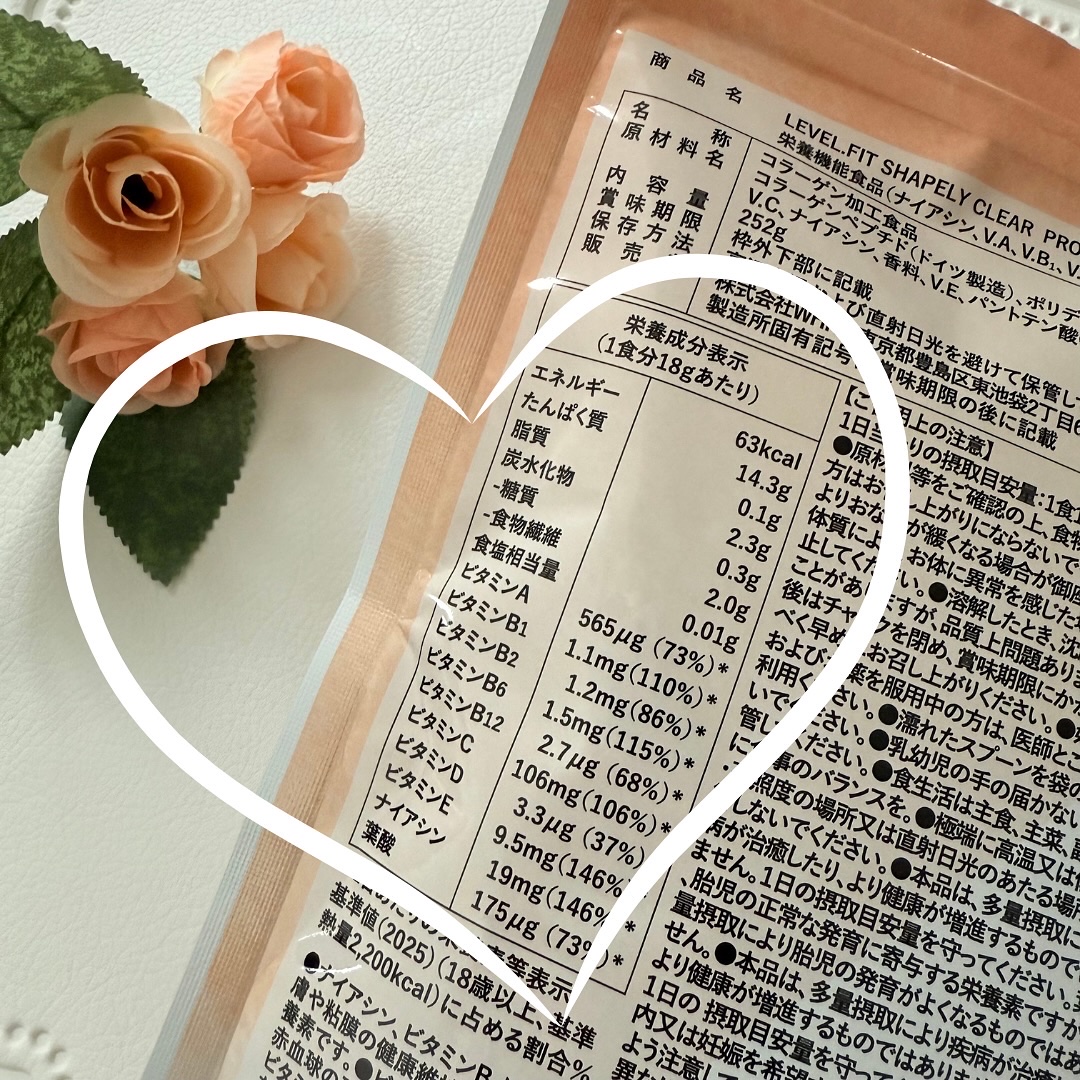 商品名 LEVEL.FIT SHAPELY CLEAR PRO
名称 栄養機能食品(ナイアシン、V.A、V.B₁、V.
コラーゲン加工食品
原材料名 コラーゲンペプチド(ドイツ製造)、ポリデ
V.C、ナイアシン、香料、V.E、パントテン酸
内容量 252g
賞味期限 枠外下部に記載
保存方法 および直射日光を避けて保管し
販売 株式会社 東京都豊島区東池袋2丁目6
製造所固有記号 賞味期限の後に記載
栄養成分表示
(1食分18gあたり)
エネルギー 63kcal
たんぱく質 14.3g
脂質 0.1g
炭水化物 2.3g
-糖質 0.3g
-食物繊維 2.0g
食塩相当量 0.01g
ビタミンA 565μg (73%)*
ビタミンB1 1.1mg(110%)*
ビタミンB2 1.2mg(86%)*
ビタミンB6 1.5mg(115%)*
ビタミンB12 2.7μg (68%)*
ビタミンC 106mg(106%)*
ビタミンD 3.3μg (37%)
ビタミンE 9.5mg(146%
ナイアシン 19mg(146% *
葉酸 175μg (73% *
等表示
基準値(2025)(18歳以上、基準
熱量2,200kcal)に占める割合%
●ナイアシン、ビタミンB
膚や粘膜の健康維
養素です。●ビ
赤血球の
ビタミ
上の注意】
1日 りの摂取目安量:1食
●原材 等をご確認の上、食物
方はお し上がりにならないで
よりおな が緩くなる場合が御座
体質によ お体に異常を感じた
止してく い。●溶解したとき、沈
ことがあ ますが、品質上問題あり
後はチャックを閉め、賞味期限にか
べく早め お召し上がりください。●
および 薬を服用中の方は、医師と
利用く さい。●濡れたスプーンを袋の
いでください。●乳幼児の手の届かない
管し ください。●食生活は主食、主菜、
に 事のバランスを。●極端に高温又は
照度の場所又は直射日光のあたる場所
しないでください。●本品は、多量摂取に
病が治癒したり、より健康が増進するもので
ません。1日の摂取目安量を守ってください。
、胎児の正常な発育に寄与する栄養素ですが
量摂取により胎児の発育がよくなるものではあ
せん。●本品は、多量摂取により疾病が治
より健康が増進するものではありま
1日の摂取目安量を守って
内又は妊娠を希望
よう注意し